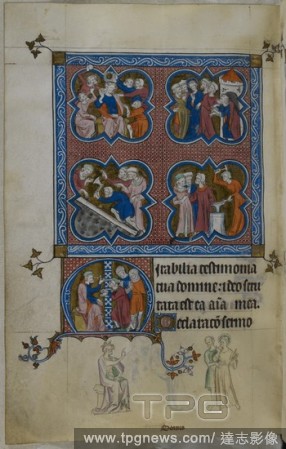 Mirabilia testimonia
tua domine: ideo scru
tata est ea aīa mea.
Declaratio sermo
TPG
www.tpgnews.com/達志影像